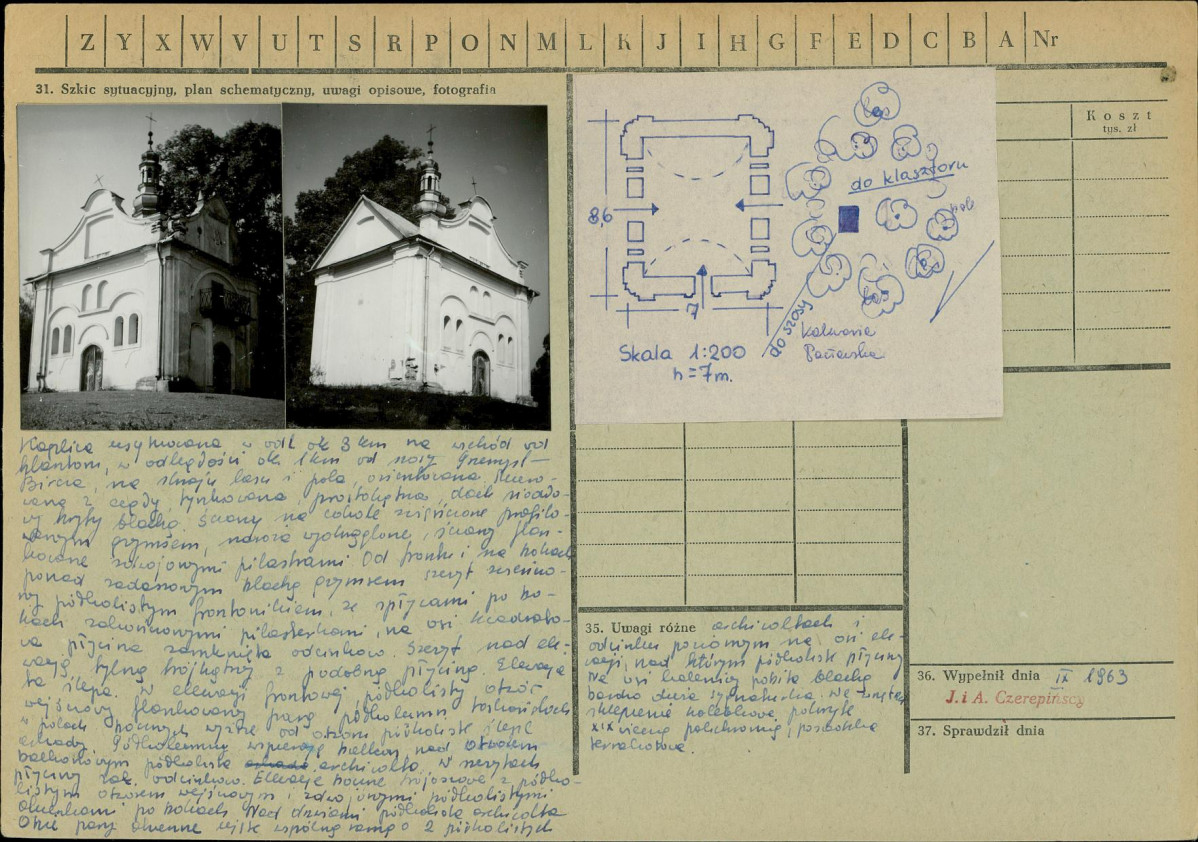 Z Y X W V U T S R P O N M L K J I H G F E D C B A Nr
31. Szkic sytuacyjny, plan schematyczny, uwagi opisowe, fotografia
Koszt
tys. zł
8,6
7
Skala 1:200
h = 7 m.
las
do klasztoru
pole
las
do szosy
Kalwaria
Pacławska
Kaplica usytuowana w odl. ok 3 km na wschód od
klasztoru, w odległości ok 1 km od szosy Przemyśl –
Bircza, na skraju lasu i pola, orientowana, muro-
wana z cegły, tynkowana, prostokątna, dach siodło-
wy kryty blachą. Ściany na cokole zwieńczone profilo-
wanym gzymsem, naroża wyokrąglone, ściany flan-
kowane zdwojonymi pilastrami. Od frontu i na bokach
ponad zadaszonym blachą gzymsem szczyt zwieńczo-
ny półkolistym frontonikiem, ze spływami po bo-
kach zakończonymi pilasterkami, na osi kwadrato-
wa płycina zamknięta odcinkowo. Szczyt nad ele-
wacją tylną trójkątny z podobną płyciną. Elewacja
ta ślepa. W elewacji frontowej półkolisty otwór
wejściowy flankowany parą półkolumn toskańskich
w polach bocznych wyżej od otworu półkoliste ślepe
arkady. Półkolumny wspierają balkon, nad otworem
balkonowym półkolista archiwolta. W szczytach
płyciny zak. odcinkowo. Elewacje boczne trójosiowe z półko-
listym otworem wejściowym i zdwojonymi półkolistymi
okienkami po bokach. Nad drzwiami półkolista archiwolta
Obie pary okienne ujęte wspólną ramą o 2 półkolistych
35. Uwagi różne archiwoltach i
odcinku poziomym na osi ele-
wacji, nad którym półkoliste płyciny
Na osi kalenicy pobita blachą
bardzo duża sygnaturka. We wnętrzu
sklepienie kolebkowe, pokryte
XIX wieczną polichromią, posadzka
terrakotowa.
36. Wypełnił dnia IX 1963
J. i A. Czerepińscy
37. Sprawdził dnia